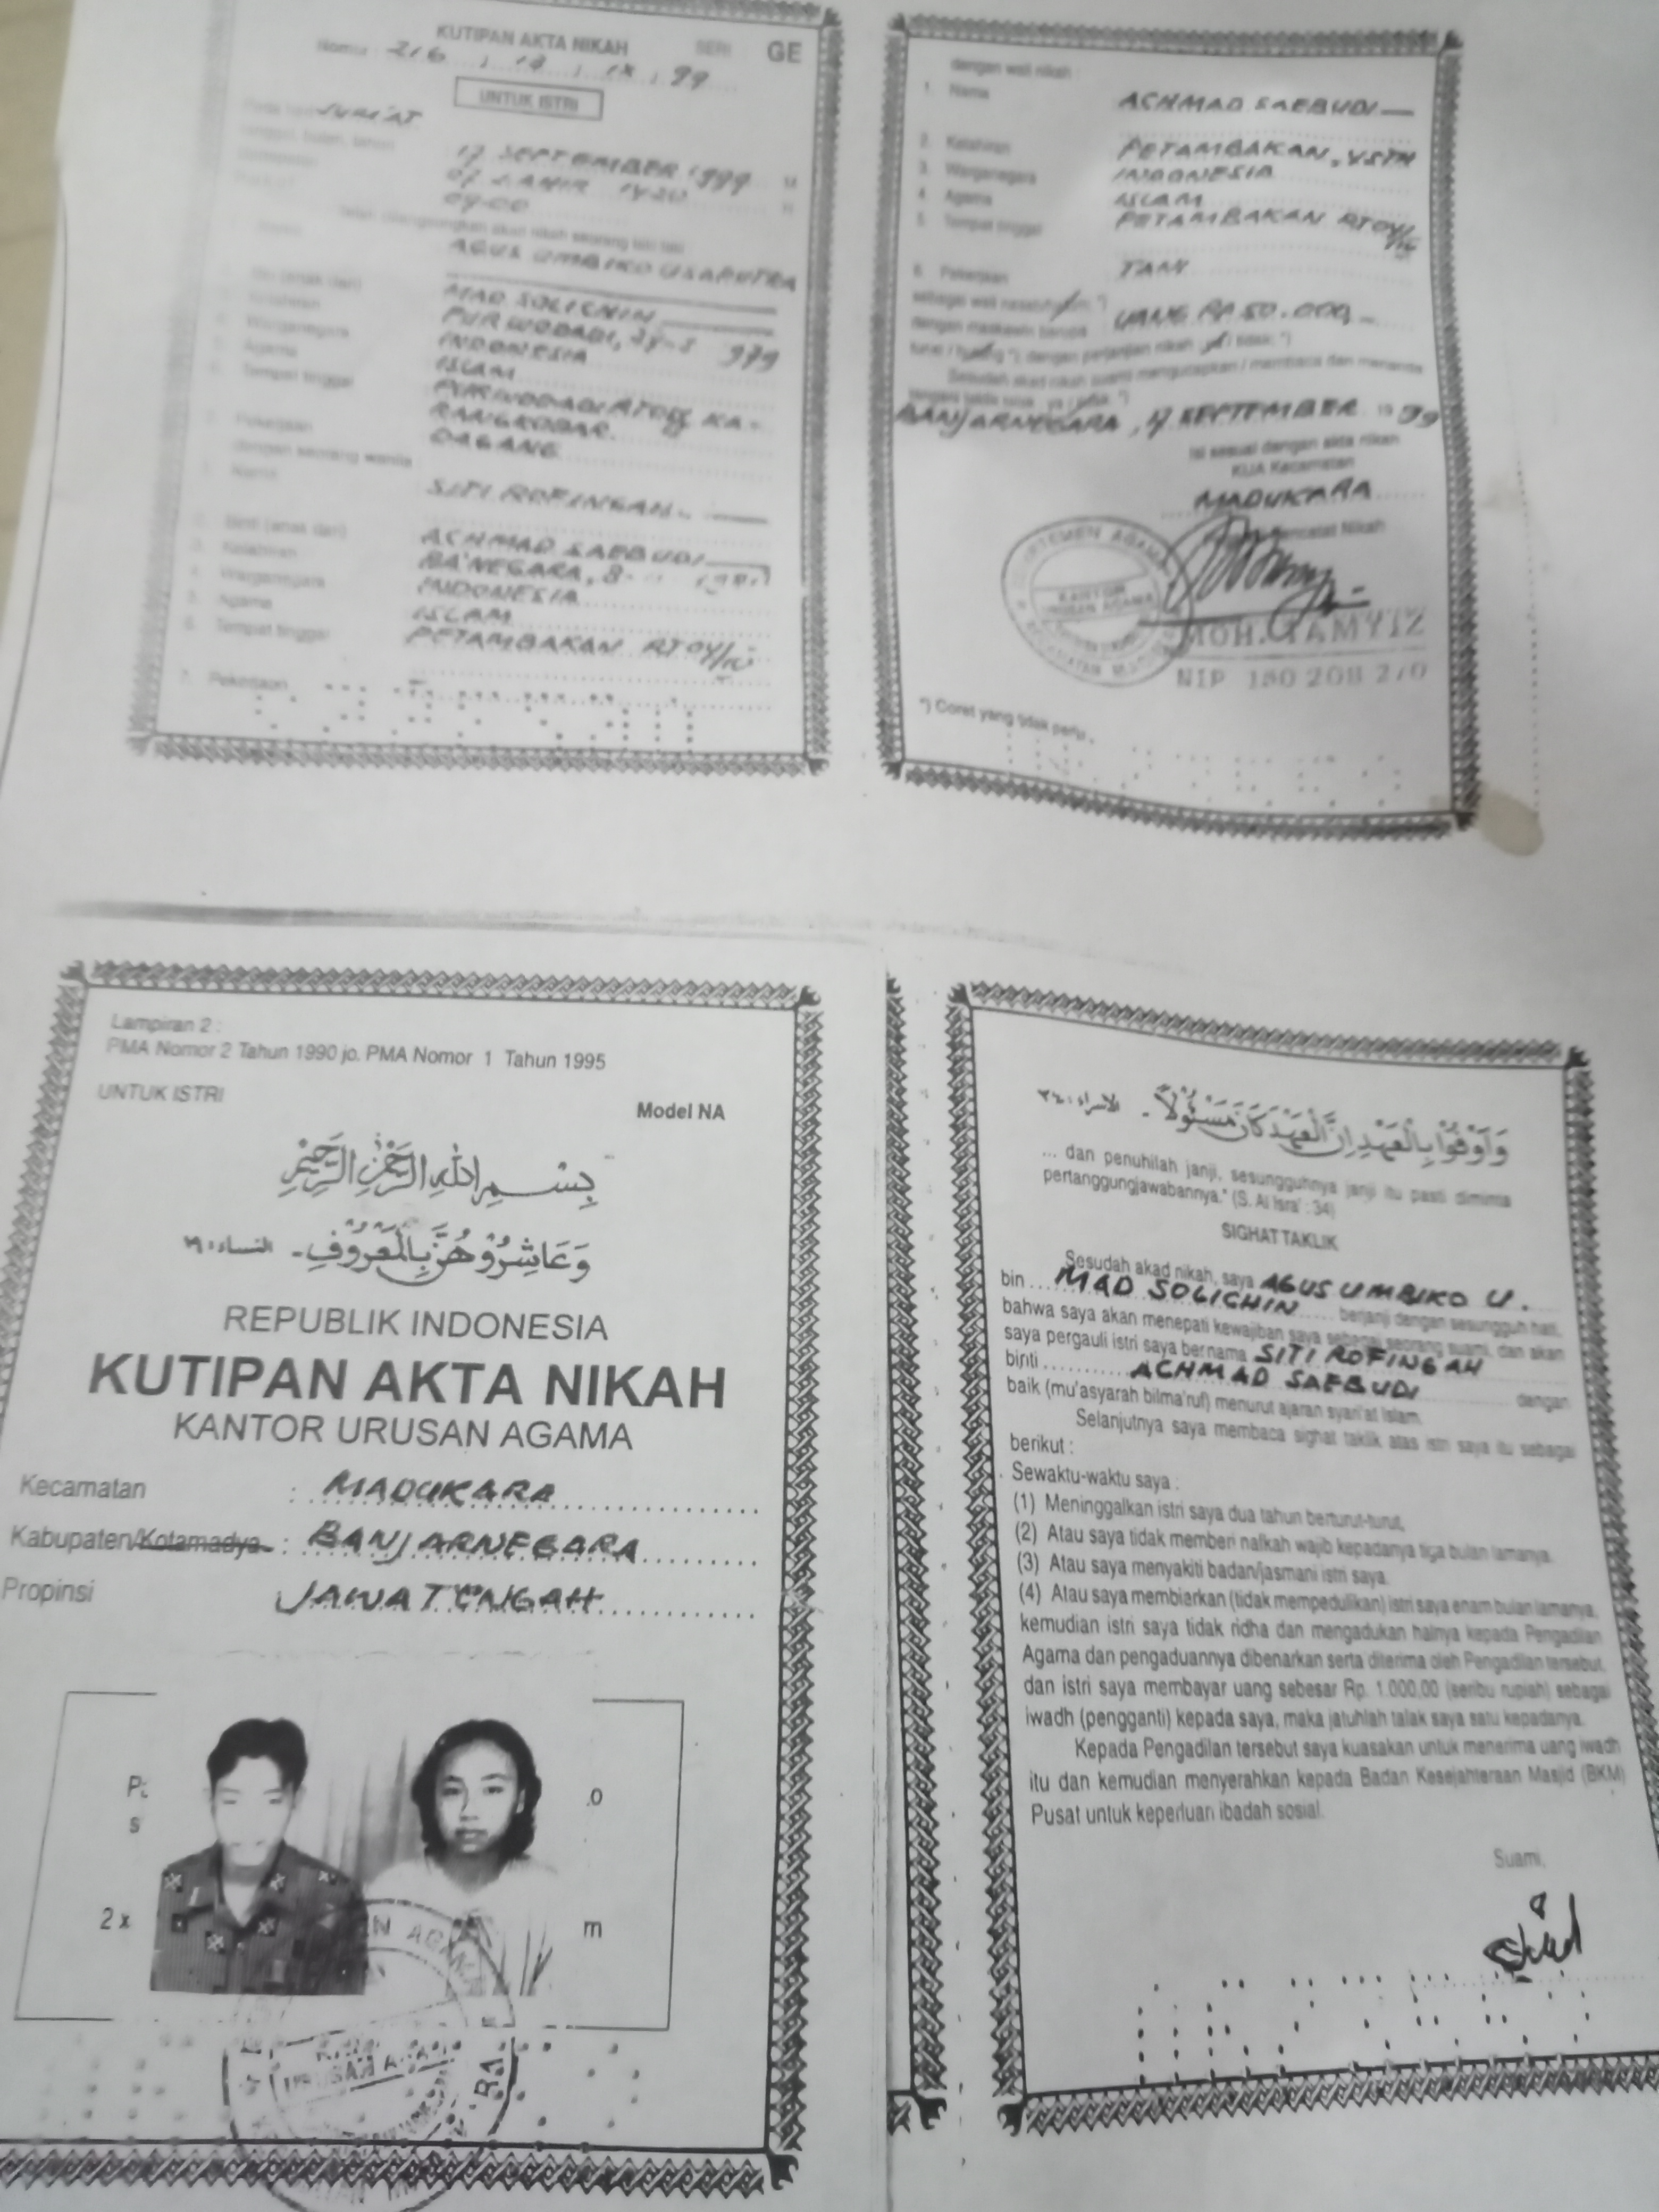 KUTIPAN AKTA NIKAH SERI GE
Nomor : 216 / 19 / IX / 99
UNTUK ISTRI
JUM'AT
17 SEPTEMBER 1999 M
1420 H
09.00
AGUS UMBIKO USAPUTRA
MAD SOLICHIN
PURWODADI,
Warganegara INDONESIA
Agama ISLAM
Tempat tinggal PURWODADI
RANGKOBAR
Pekerjaan DAGANG
dengan seorang wanita
1. Nama SITI ROFINGAH
2. Binti (anak dari) ACHMAD SAEBUDI
3. Kelahiran BA'NEGARA, 8-
4. Warganegara INDONESIA
5. Agama ISLAM
6. Tempat tinggal PETAMBAKAN
7. Pekerjaan
dengan wali nikah :
1. Nama ACHMAD SAEBUDI
2. Kelahiran PETAMBAKAN,
3. Warganegara INDONESIA
4. Agama ISLAM
5. Tempat tinggal PETAMBAKAN
6. Pekerjaan TANI
sebagai wali
dengan maskawin berupa UANG Rp 50.000,-
tunai / hutang *) dengan perjanjian nikah ya / tidak; *)
Sesudah akad nikah suami mengucapkan / membaca dan menanda
tangani taklik talak : ya / tidak. *)
BANJARNEGARA, 17 SEPTEMBER 1999
Isi sesuai dengan akta nikah
KUA Kecamatan
MADUKARA
Pencatat Nikah
DEPARTEMEN AGAMA
KANTOR
URUSAN AGAMA
MOH. TAMYIZ
NIP 150 208 270
*) Coret yang tidak perlu.
Lampiran 2 :
PMA Nomor 2 Tahun 1990 jo. PMA Nomor 1 Tahun 1995
UNTUK ISTRI
Model NA
بِسْمِ اللهِ الرَّحْمٰنِ الرَّحِيْمِ
وَعَاشِرُوْهُنَّ بِالْمَعْرُوْفِ - النساء : ١٩
REPUBLIK INDONESIA
KUTIPAN AKTA NIKAH
KANTOR URUSAN AGAMA
Kecamatan : MADUKARA
Kabupaten/Kotamadya : BANJARNEGARA
Propinsi JAWA TENGAH
2 x m
URUSAN AGAMA
وَأَوْفُوْا بِالْعَهْدِ إِنَّ الْعَهْدَ كَانَ مَسْئُوْلًا - الاسراء : ٣٤
... dan penuhilah janji, sesungguhnya janji itu pasti diminta
pertanggungjawabannya." (S. Al Isra' : 34)
SIGHAT TAKLIK
Sesudah akad nikah, saya AGUS UMBIKO U.
bin ... MAD SOLICHIN ..... berjanji dengan sesungguh hati,
bahwa saya akan menepati kewajiban saya sebagai seorang suami, dan akan
saya pergauli istri saya bernama SITI ROFINGAH
binti .......... ACHMAD SAEBUDI .......... dengan
baik (mu'asyarah bilma'ruf) menurut ajaran syari'at Islam.
Selanjutnya saya membaca sighat taklik atas istri saya itu sebagai
berikut :
Sewaktu-waktu saya :
(1) Meninggalkan istri saya dua tahun berturut-turut,
(2) Atau saya tidak memberi nafkah wajib kepadanya tiga bulan lamanya.
(3) Atau saya menyakiti badan/jasmani istri saya.
(4) Atau saya membiarkan (tidak mempedulikan) istri saya enam bulan lamanya,
kemudian istri saya tidak ridha dan mengadukan halnya kepada Pengadilan
Agama dan pengaduannya dibenarkan serta diterima oleh Pengadilan tersebut,
dan istri saya membayar uang sebesar Rp. 1.000,00 (seribu rupiah) sebagai
iwadh (pengganti) kepada saya, maka jatuhlah talak saya satu kepadanya.
Kepada Pengadilan tersebut saya kuasakan untuk menerima uang iwadh
itu dan kemudian menyerahkan kepada Badan Kesejahteraan Masjid (BKM)
Pusat untuk keperluan ibadah sosial.
Suami,